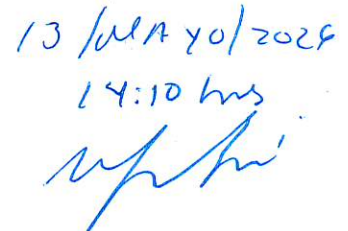 13/MAYO/2024
14:10 hrs